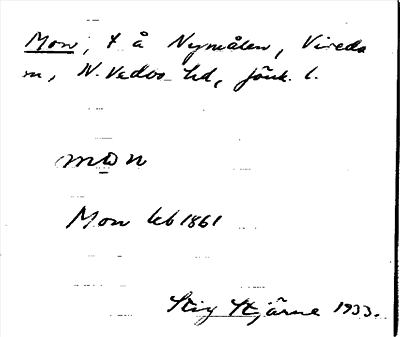 Mon, t å Nymålen, Vireda
sn, N. Vedbo hd, Jönk. l.
mon
Mon kb 1861
Stig Stjärne 1933.